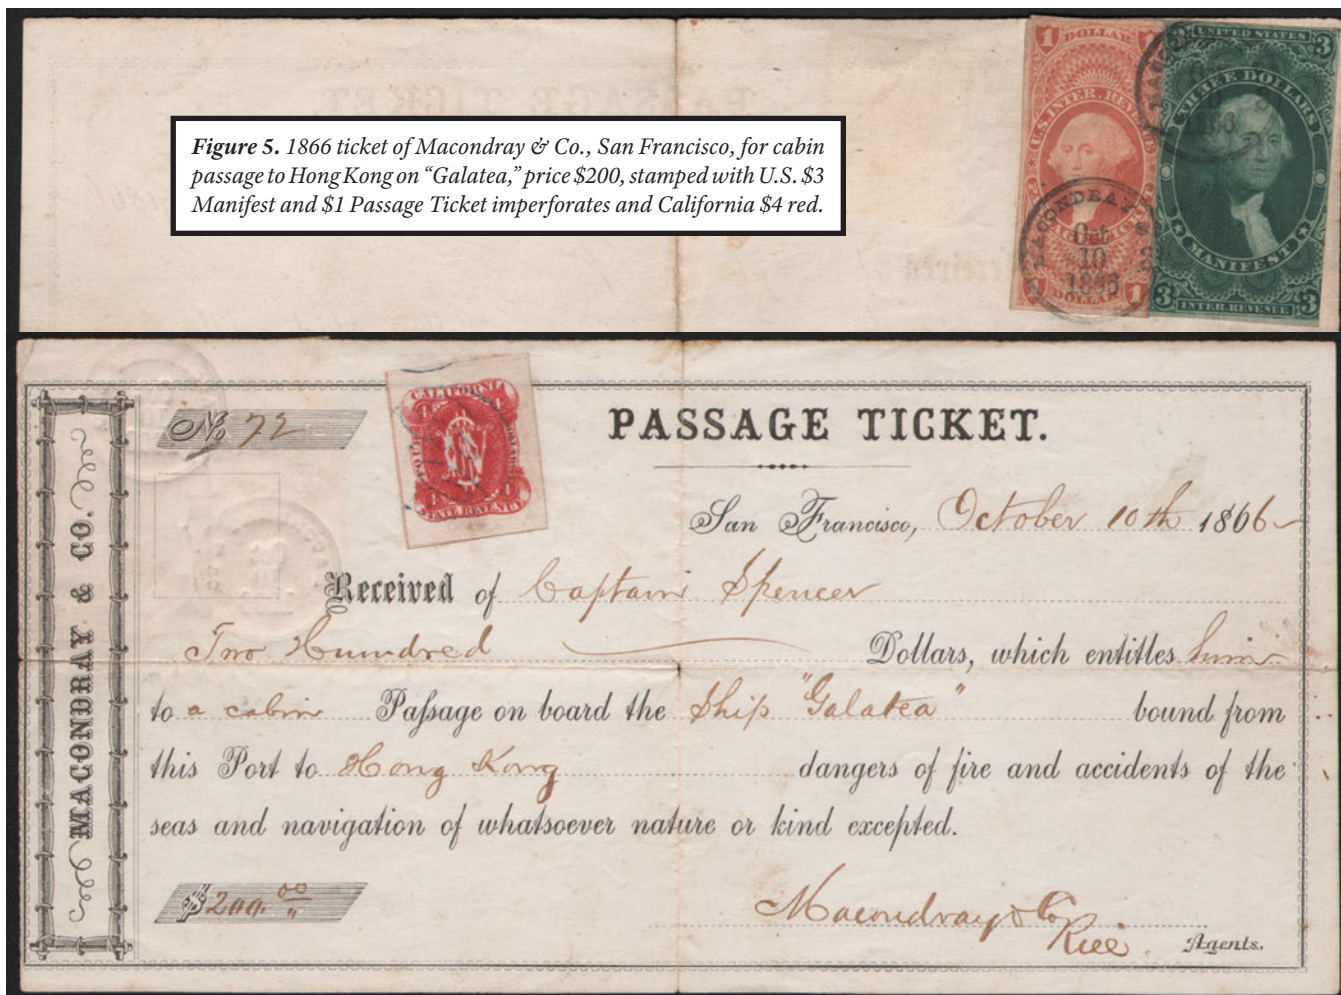 Figure 5. 1866 ticket of Macondray & Co., San Francisco, for cabin
passage to Hong Kong on “Galatea,” price $200, stamped with U.S. $3
Manifest and $1 Passage Ticket imperforates and California $4 red.
1 DOLLAR 1
U.S. INTER. REV
MACONDRAY &
Oct
10
1866
DOLLAR 1
UNITED STATES 3
THREE DOLLARS
MANIFEST
3 INTER. REVENUE 3
MACONDRAY & CO.
No 72
CALIFORNIA
4 4
FOUR DOLLARS
4 4
STATE REVENUE
PASSAGE TICKET.
San Francisco, October 10th 1866
Received of Captain Spencer
Two Hundred Dollars, which entitles him
to a cabin Passage on board the Ship "Galatea" bound from
this Port to Hong Kong dangers of fire and accidents of the
seas and navigation of whatsoever nature or kind excepted.
$200.00
Macondray & Co
Agents.